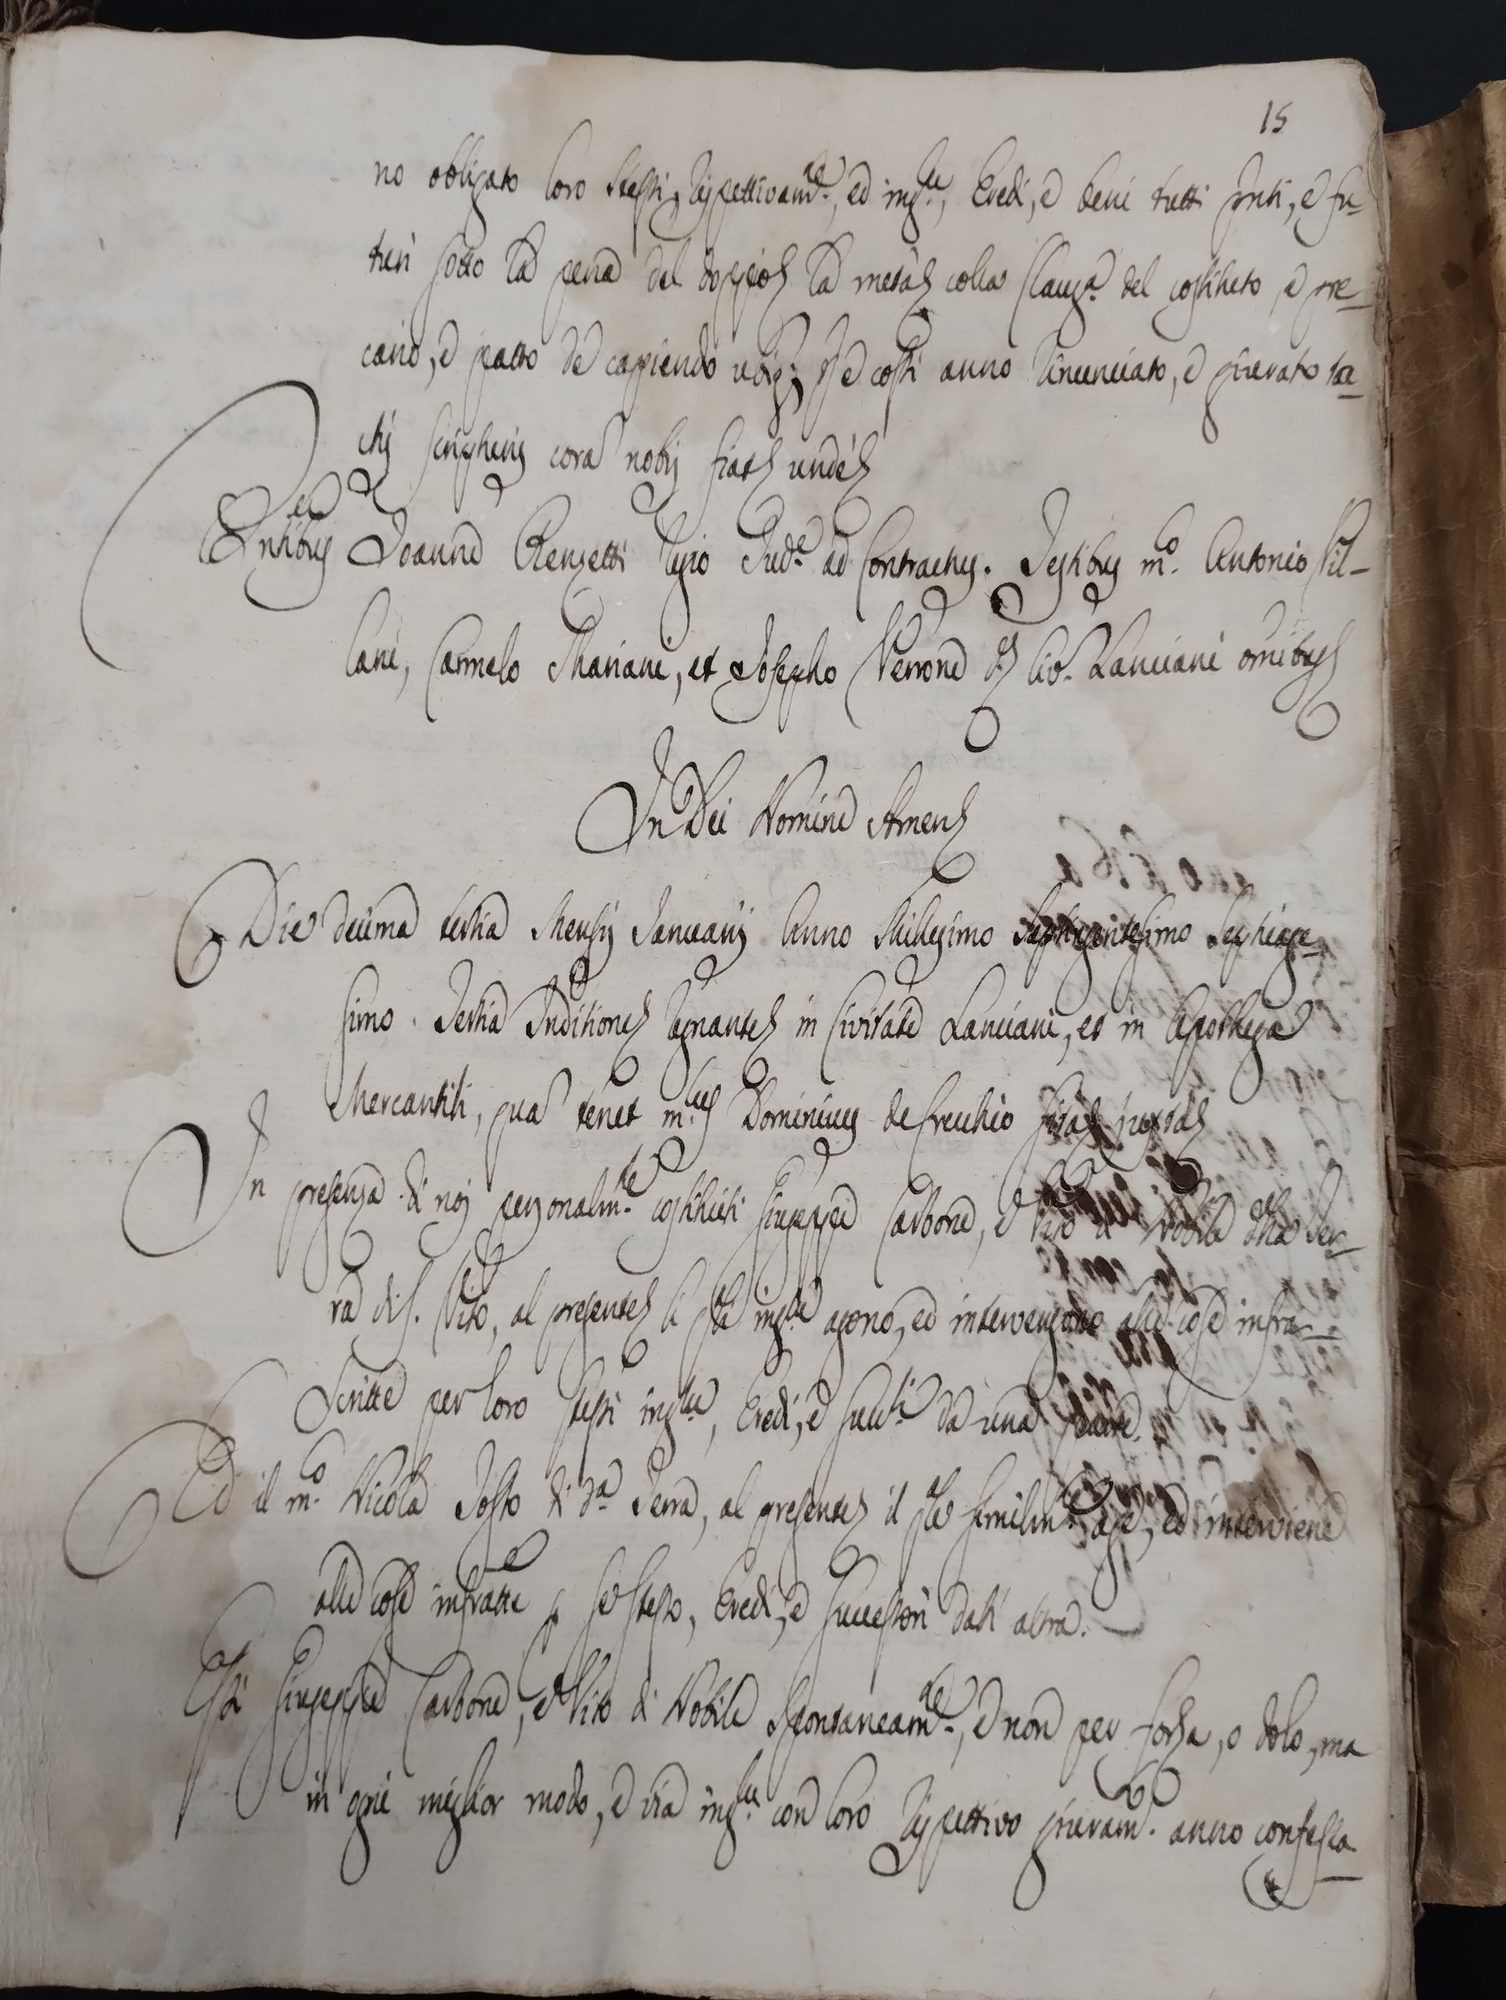 15
no obligato loro stessi rispettivam.te, ed ins.m, Eredi, e beni tutti pnti, e fu-
turi sotto la pena del doppio la metà colla Clauq.a del costituto e pre-
cario, e patto de capiendo anno rinunciato, e giurato tac-
tis scripturis corã nobis unde
Pntibus Joanne Renzetti regio Jud.e ad Contractus. Testibus m.o Antonio Vil-
lani, Carmelo Mariani, et Josepho Verrone Civ. Lanciani omibus
In Dei Nomine Amen
Die decima tertia Mensis Januarij Anno Millesimo Septuagentesimo Septuage-
simo. Tertia Inditione regnante in Civitate Lanciani, et in Apothega
Mercantili, qua tenet m.cus Dominicus de Crecchio juxta
In presenza di noi personalm.te costituti Giuseppe Carbone, e Vito di Nobile della Ter-
ra di S. Vito, al presente li q.li ins.m agono, ed intervengono alle cose infra-
scritte per loro stessi ins.m, Eredi, e succ.ri da una parte.
Ed il m.o Nicola Tosto di d.a Terra, al presente il q.le similm.te age, ed interviene
alle cose infratte p se stesso, Eredi, e successori dall' altra.
Essi Giuseppe Carbone, e Vito di Nobile spontaneam.te, e non per forza, o dolo, ma
in ogni miglior modo, e via ins.m con loro rispettivo giuram.to anno confessa-